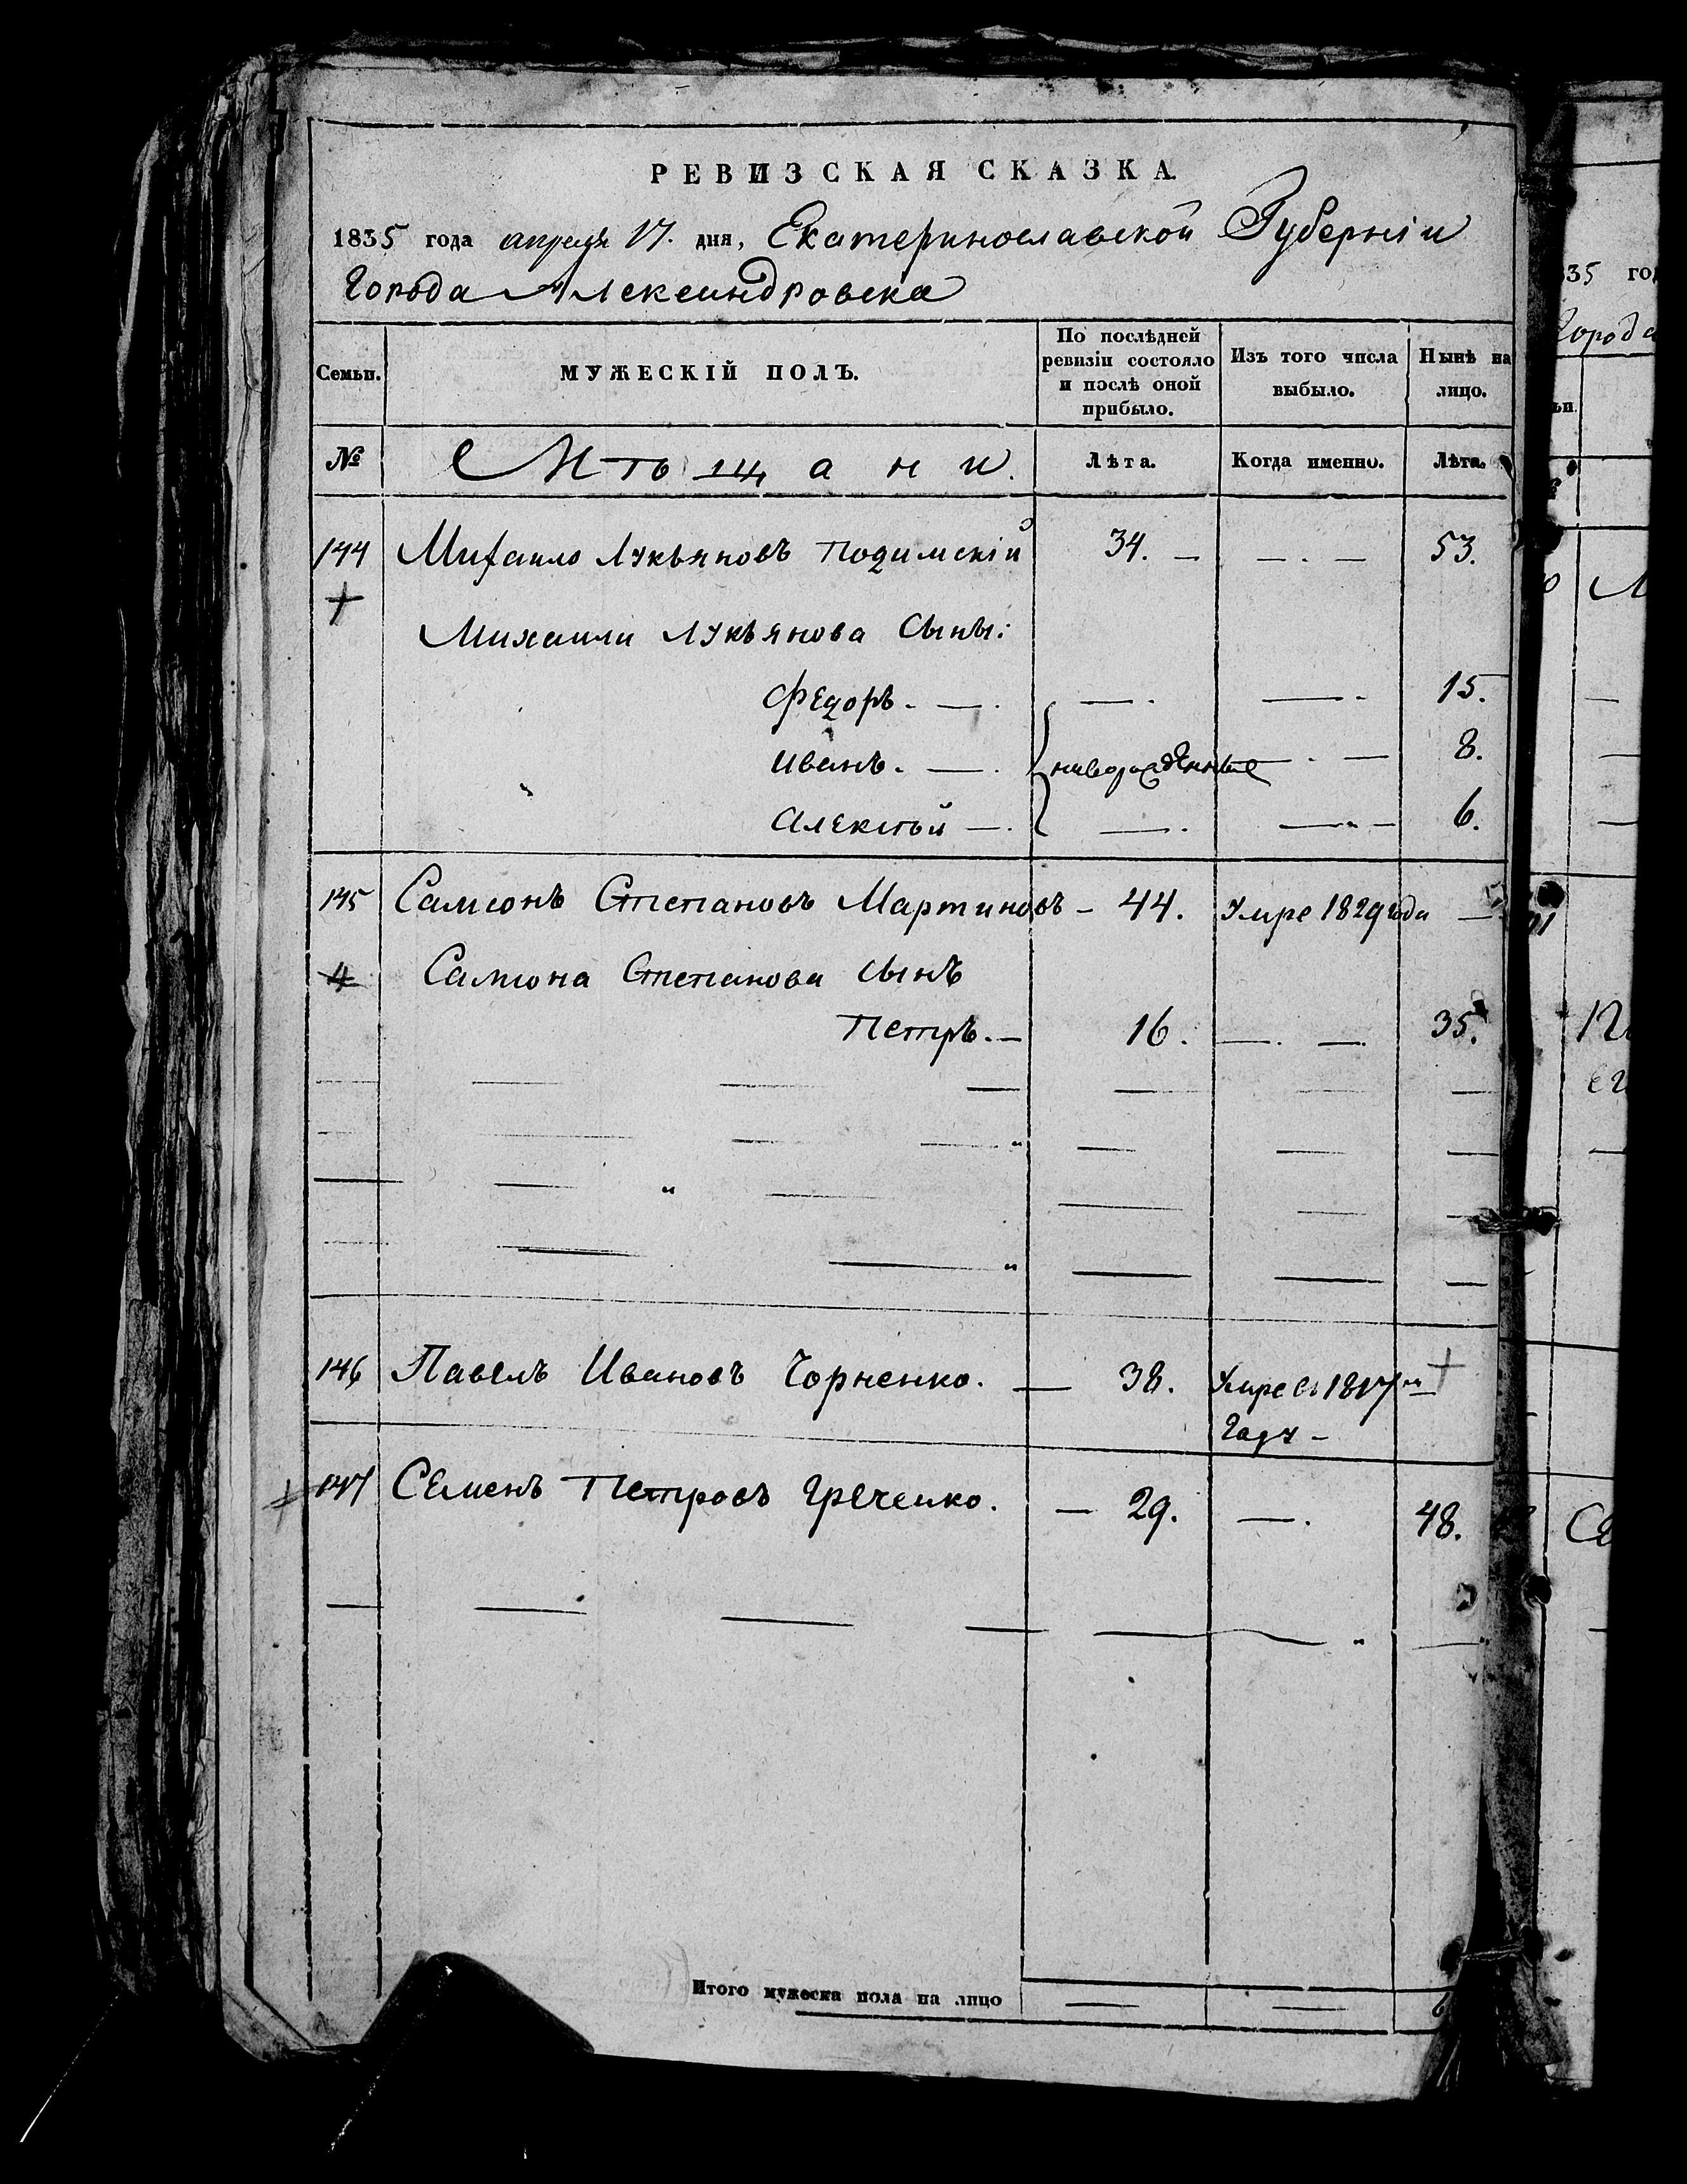 РЕВИЗСКАЯ СКАЗКА.
1835 года апреля 17. дня, Екатеринославской Губерніи
Города Александровска
Семьи. МУЖЕСКІЙ ПОЛЪ. По послѣдней ревизіи состояло и послѣ оной прибыло. Изъ того числа выбыло. Нынѣ на лицо.
№ Мѣщани. Лѣта. Когда именно. Лѣта.
144 Михаило Лукьяновъ Подимскій 34. — — . — 53.
Михаили Лукьянова Сыны:
Федоръ. — . — . — . 15.
Иванъ. — . новорожденные — . — 8.
Алексѣй — . — . — . — 6.
145 Самсонъ Степановъ Мартиновъ — 44. Умре 1829 года —
4 Самсона Степанова сынъ
Петръ. — 16. — . — . 35.
146 Павелъ Ивановъ Чорненко. — 38. Умре въ 1817м —
Году —
147 Семенъ Петровъ Греченко. — 29. — . 48.
Итого мужеска пола на лицо — — 6
35 год
Города